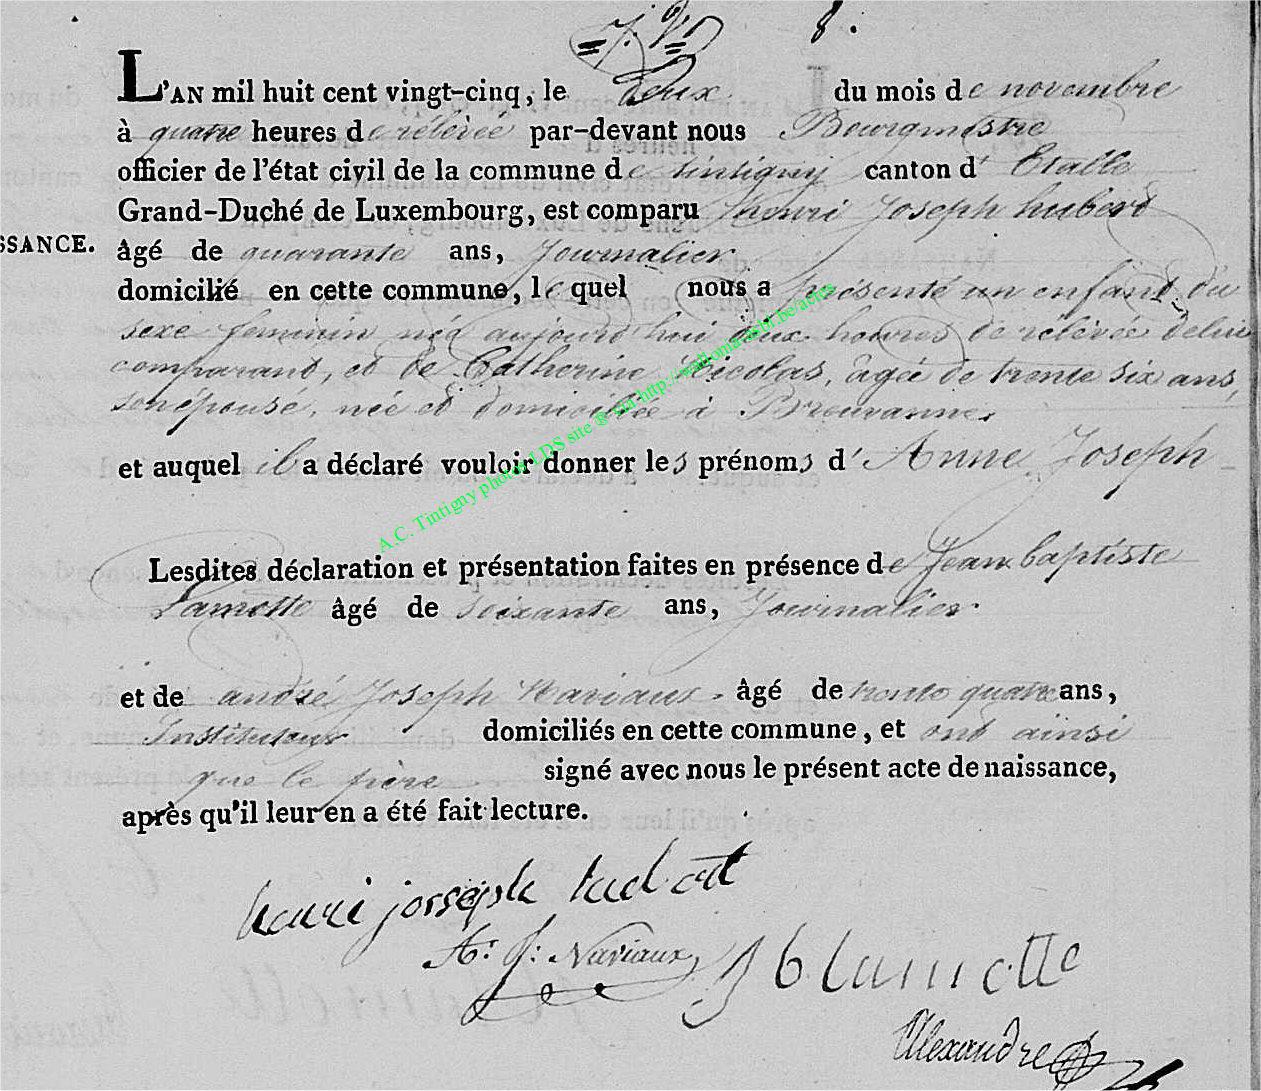 8.
L'AN mil huit cent vingt-cinq, le Deux du mois de novembre
à quatre heures de rélévée par-devant nous Bourgmestre
officier de l'état civil de la commune de tintigny canton d' Etalle
Grand-Duché de Luxembourg, est comparu henri Joseph hubert
SSANCE. âgé de quarante ans, Journalier
domicilié en cette commune, le quel nous a présenté un enfant du
sexe feminin née aujourd'hui deux heures de rélévée de lui
comparant, et de Catherine Nicolas, âgée de trente six ans,
son épouse, née et domiciliée à Breuvannes
et auquel il a déclaré vouloir donner les prénoms d' Anne Joseph
Lesdites déclaration et présentation faites en présence de Jean baptiste
Lamotte âgé de soixante ans, Journalier
et de andré Joseph Naviaux âgé de trente quatre ans,
Instituteur domiciliés en cette commune, et ont ainsi
que le père signé avec nous le présent acte de naissance,
après qu'il leur en a été fait lecture.
henri josseph hubert
A: J: Naviaux
J b lamotte
Alexandre
A.C. Tintigny photos LDS site ® via http://wallonia.asbl.be/actes